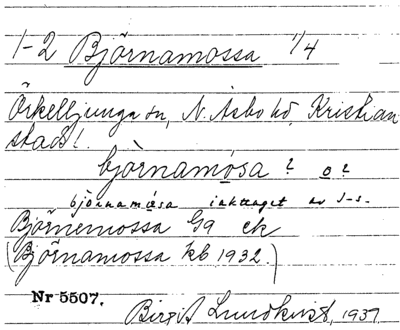 1-2 Björnamossa 1/4
Örkelljunga sn, N. Åsbo hd, Kristian
stads l.
björnamósa ? o ?
björnamosa iakttaget av S-s.
Björnemossa G9 ek
(Björnamossa kb 1932.)
Nr 5507.
Birgit Lundkvist, 1937.